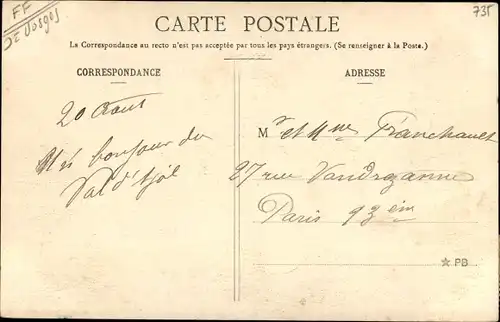 FF
Vosges
735
CARTE POSTALE
La Correspondance au recto n'est pas acceptée par tous les pays étrangers. (Se renseigner à la Poste.)
CORRESPONDANCE
ADRESSE
20 Aout
bonjour du
Val d'Ajol
Mr et Mme Franchault
27 rue Vandrezanne
Paris 13 èm
PB